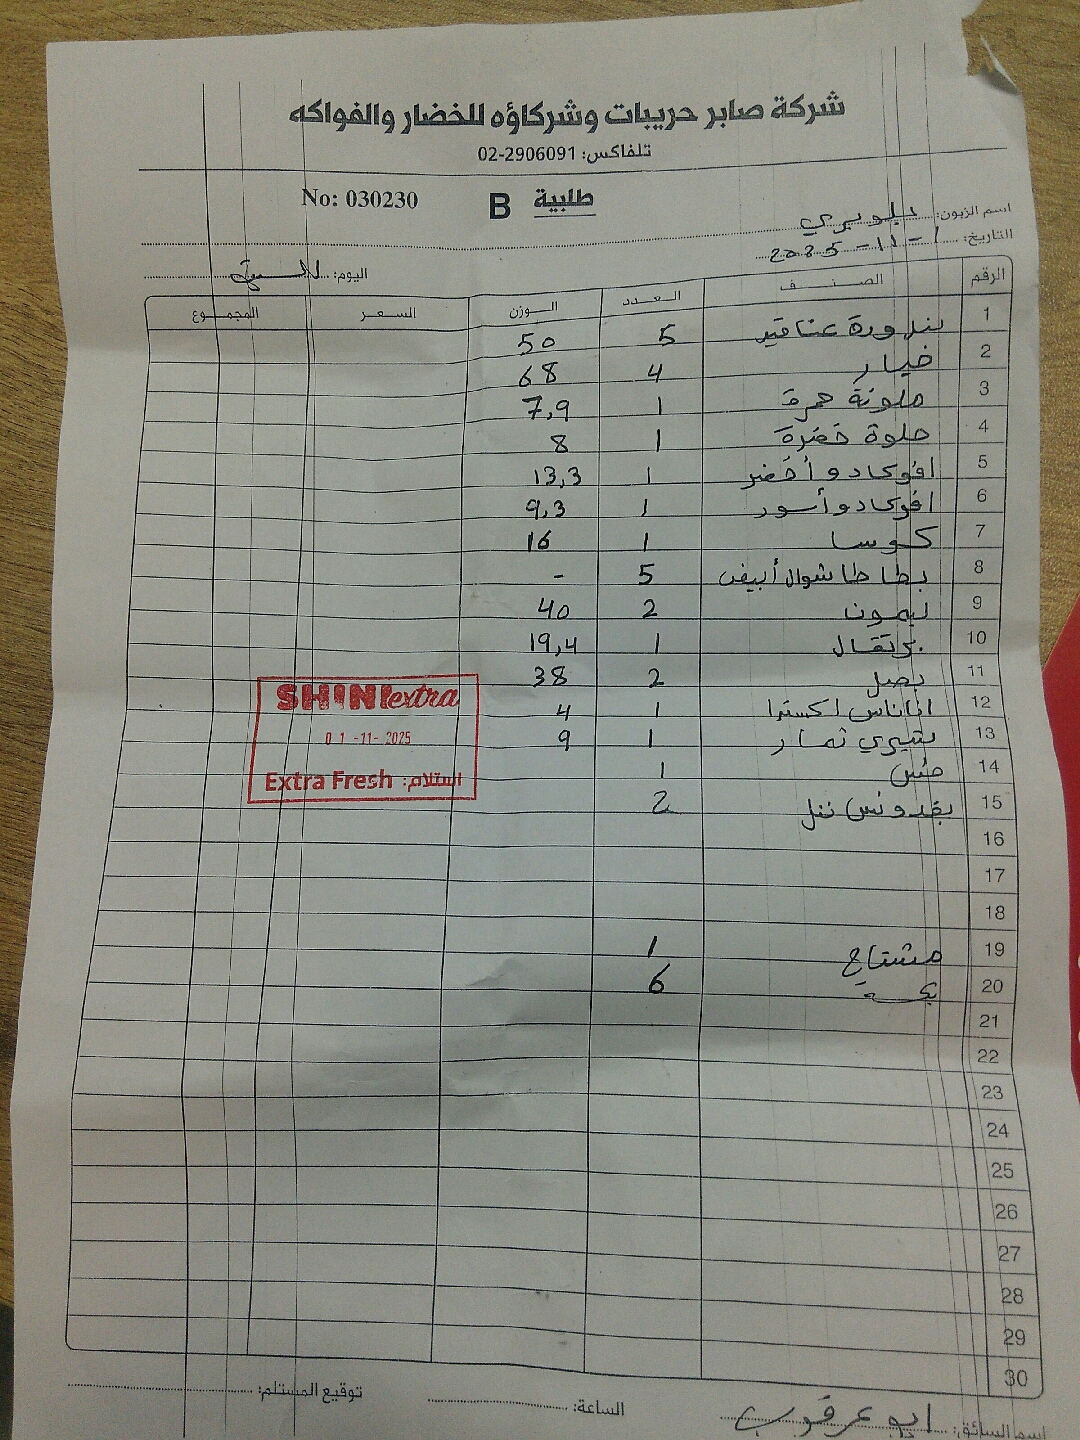 شركة صابر حريبات وشركاؤه للخضار والفواكه
تلفاكس: 02-2906091
No: 030230 B طلبية
اسم الزبون: بلوبيري
التاريخ: 1-11-2025
اليوم: السبت
الرقم الصنف العدد الوزن السعر المجموع
1 بندورة عناقيد 5 50
2 خيار 4 68
3 ملونة حمرة 1 7,9
4 حلوة خضرة 1 8
5 افوكادو أخضر 1 13,3
6 افوكادو أسود 1 9,3
7 كوسا 1 16
8 بطاطا شوال أبيض 5 -
9 ليمون 2 40
10 برتقال 1 19,4
11 بصل 2 38
12 اناناس اكسترا 1 4
13 شيري تمار 1 9
14 خس 1
15 بقدونس نخل 2
16
17
18
19 مشتاح 1
20 6
21
22
23
24
25
26
27
28
29
30
SHINI extra
01-11-2025
Extra Fresh استلام:
اسم السائق: ابو عرقوب
الساعة:
توقيع المستلم: